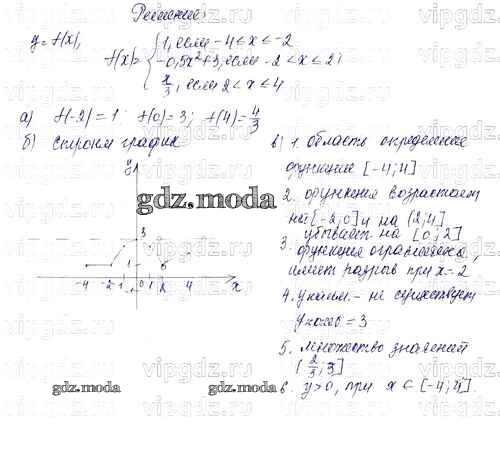 Решение:
y = f(x),
f(x) = { 1, если -4 ≤ x ≤ -2
-0,5x²+3, если -2 < x ≤ 2;
x/3, если 2 < x ≤ 4
а) f(-2) = 1; f(0) = 3; f(4) = 4/3
б) строим график
y
3
1
-4 -2 -1 0 1 2 4 x
-1
в) 1. область определения
функции [-4; 4]
2. функция возрастает
на [-2, 0] и на (2, 4]
убывает на [0; 2]
3. функция ограничена,
имеет разрыв при x = 2,
4. yнаим. - не существует
yнаиб = 3
5. множество значений
(2/3; 3]
6. y>0, при x ∈ [-4; 4].
gdz.moda
gdz.moda
gdz.moda
vipgdz.ru